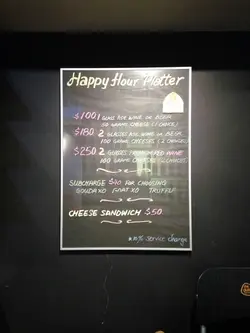 Happy Hour Platter
$100 1 GLASS HSE WINE OR BEER
50 GRAMS CHEESE (1 CHOICE)
$180 2 GLASSES HSE WINE OR BEER
100 GRAMS CHEESES (2 CHOICES)
$250 2 GLASSES WINE
100 GRAMS CHEESES CHOICES
SUBCHARGE $40 FOR CHOOSING
GOUDA XO GOAT XO TRUFFLE
CHEESE SANDWICH $50
* 10% Service Charge